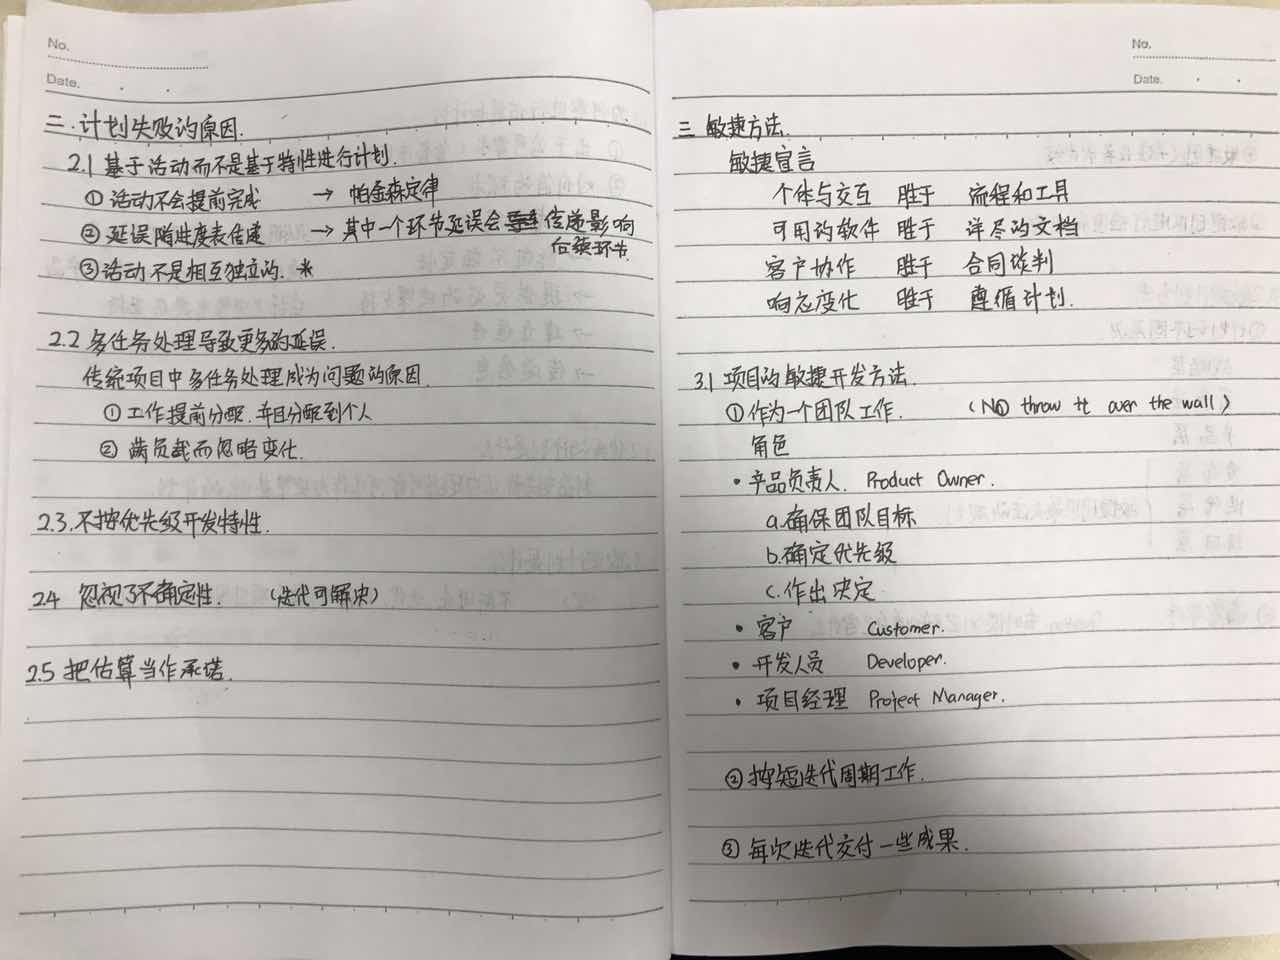 No.
Date.
二.计划失败的原因.
2.1 基于活动而不是基于特性进行计划.
① 活动不会提前完成 → 帕金森定律
② 延误随进度表传递 → 其中一个环节延误会 传递影响
后续环节.
③ 活动不是相互独立的. *
2.2 多任务处理导致更多的延误.
传统项目中多任务处理成为问题的原因.
① 工作提前分配.并且分配到个人
② 满负载而忽略变化.
2.3.不按优先级开发特性.
2.4 忽视了不确定性. (迭代可解决)
2.5 把估算当作承诺.
No.
Date.
三 敏捷方法.
敏捷宣言
个体与交互 胜于 流程和工具
可用的软件 胜于 详尽的文档
客户协作 胜于 合同谈判
响应变化 胜于 遵循计划.
3.1 项目的敏捷开发方法.
① 作为一个团队工作. (NO throw it over the wall)
角色
• 产品负责人. Product Owner.
a.确保团队目标
b.确定优先级
c.作出决定.
• 客户 Customer.
• 开发人员 Developer.
• 项目经理 Project Manager.
② 按短迭代周期工作.
③ 每次迭代交付一些成果.